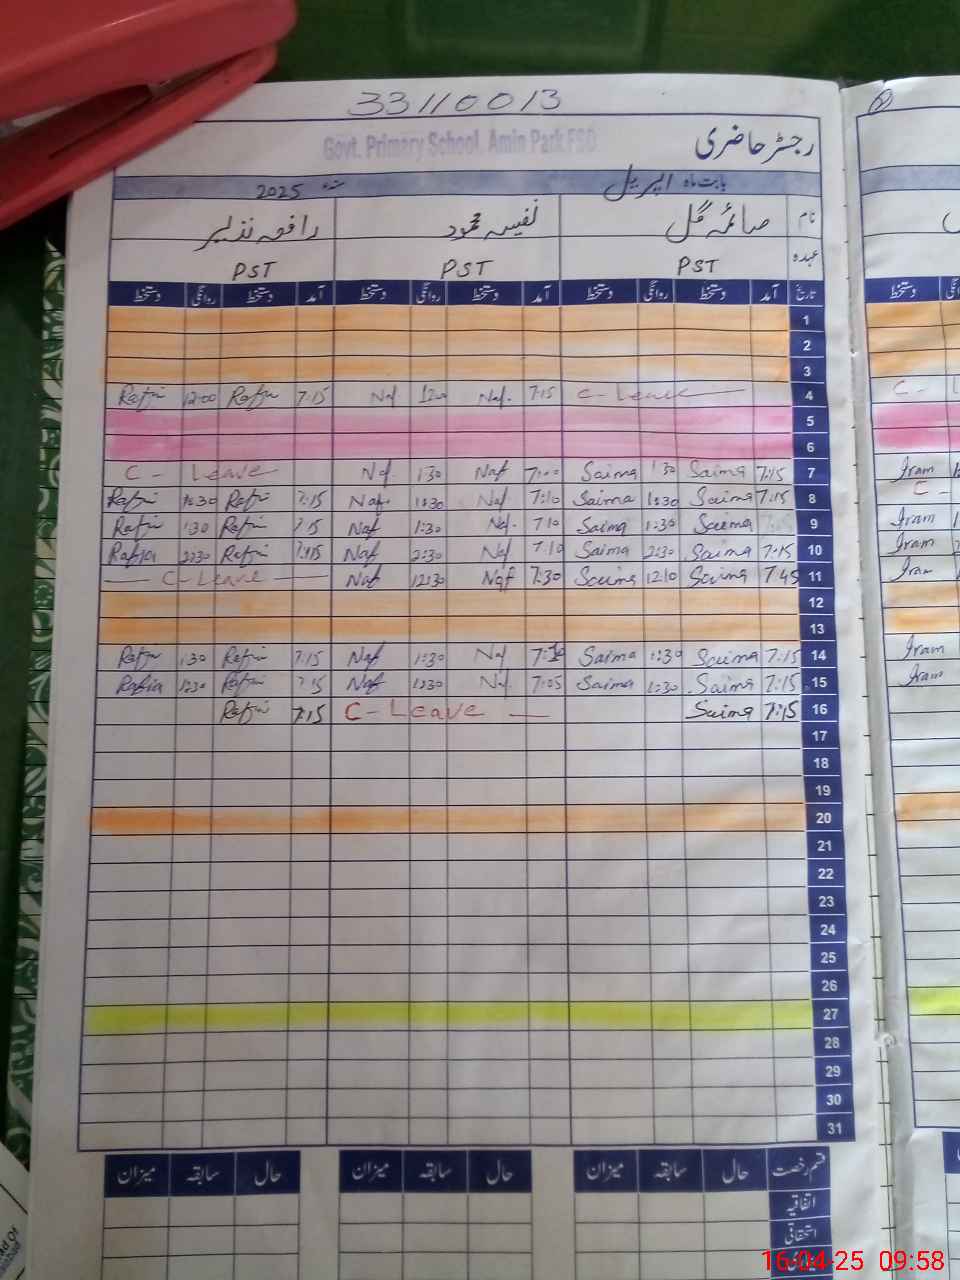 33110013
Govt. Primary School, Amin Park FSD
رجسٹر حاضری
بابت ماہ اپریل سنہ 2025
نام صائمہ گل نفیسہ محمود رافعہ نذیر
عہدہ PST PST PST
تاریخ آمد دستخط روانگی دستخط آمد دستخط روانگی دستخط آمد دستخط روانگی دستخط
دستخط
1
2
3
Rafia 12:00 Rafia 7:15 Naf 12:00 Naf. 7:15 C-Leave 4
C-
5
6
C- Leave Naf 1:30 Naf 7:00 Saima 1:30 Saima 7:15 7 Iram
Rafia 1:30 Rafia 7:15 Naf. 1:30 Naf 7:10 Saima 1:30 Saima 7:15 8 C-
Rafia 1:30 Rafia 7:15 Naf 1:30 Naf. 7:10 Saima 1:30 Saima 9 Iram
Rabia 2:30 Rafia 7:15 Naf 2:30 Naf 7:10 Saima 2:30 Saima 7:15 10 Iram
C-Leave Naf 12:30 Naf 7:30 Saima 12:10 Saima 7:45 11 Iram
12
13
Rafia 1:30 Rafia 7:15 Naf 1:30 Naf Saima 1:30 Saima 7:15 14 Iram
Rabia 1:30 Rafia 7:15 Naf 1:30 Naf 7:05 Saima 1:30 Saima 7:15 15 Iram
Rafia 7:15 C-Leave Saima 7:15 16
17
18
19
20
21
22
23
24
25
26
27
28
29
30
31
قسم رخصت حال سابقہ میزان حال سابقہ میزان حال سابقہ میزان
اتفاقیہ
استحقاقی
16-04-25 09:58